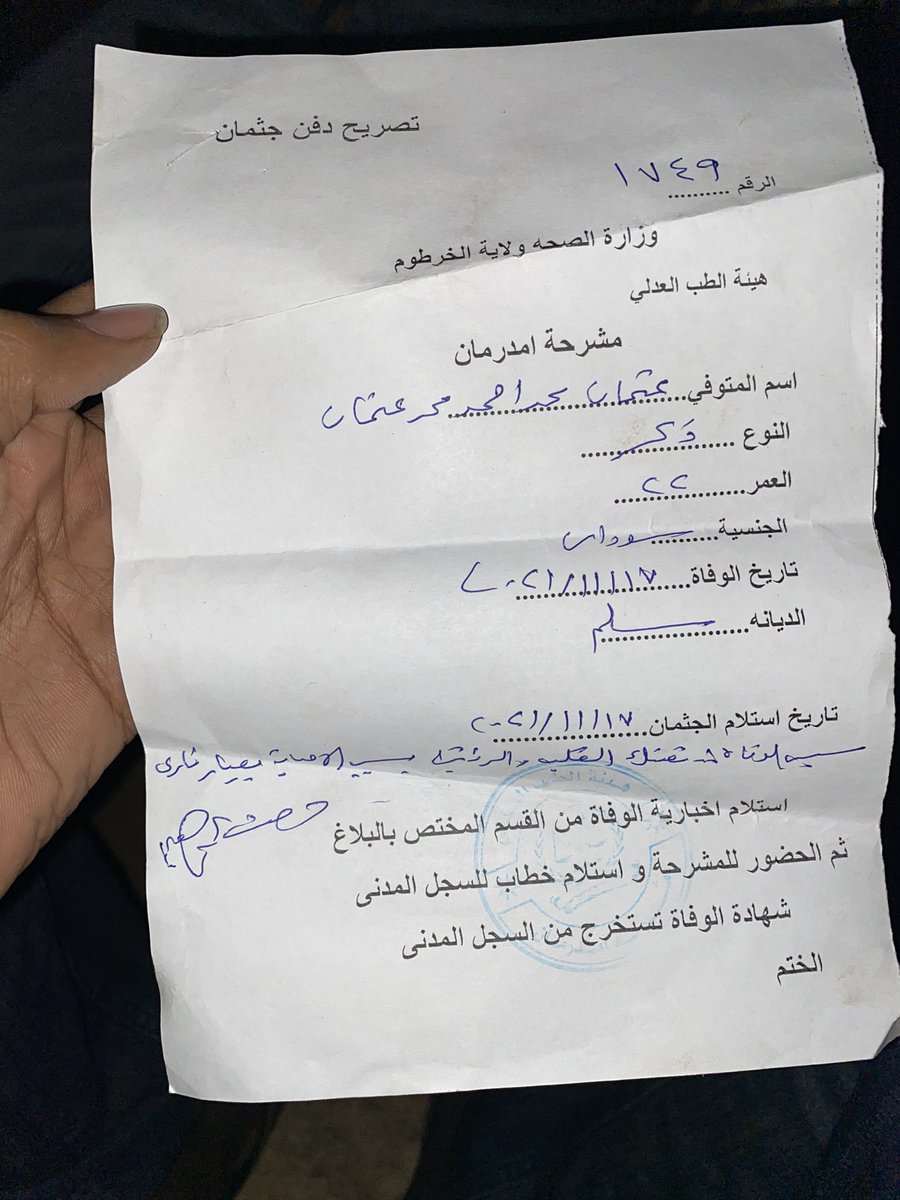 تصريح دفن جثمان
الرقم .......... ١٧٤٩
وزارة الصحه ولاية الخرطوم
هيئة الطب العدلي
مشرحة امدرمان
اسم المتوفي.......... عثمان احمد محمد عثمان
النوع .......... ذكر
العمر.......... ٢٢
الجنسية.......... سوداني
تاريخ الوفاة.......... ٢٠٢١/١١/١٧
الديانه.......... مسلم
تاريخ استلام الجثمان.......... ٢٠٢١/١١/١٧
سبب الوفاة القلب و الرئتين بسبب الاصابة بعيار ناري
استلام اخبارية الوفاة من القسم المختص بالبلاغ
ثم الحضور للمشرحة و استلام خطاب للسجل المدنى
شهادة الوفاة تستخرج من السجل المدنى
الختم